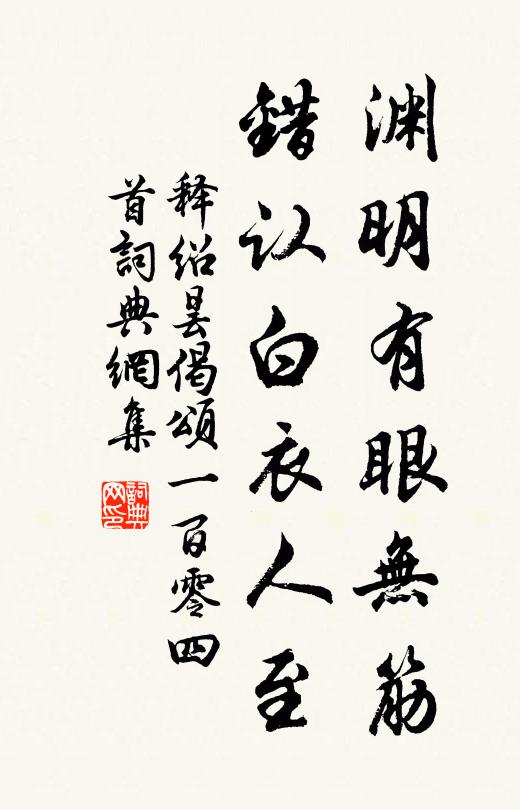 渊明有眼無筋
錯认白衣人至
释绍昙偈頌一百零四
首詞典網集
詞典网印